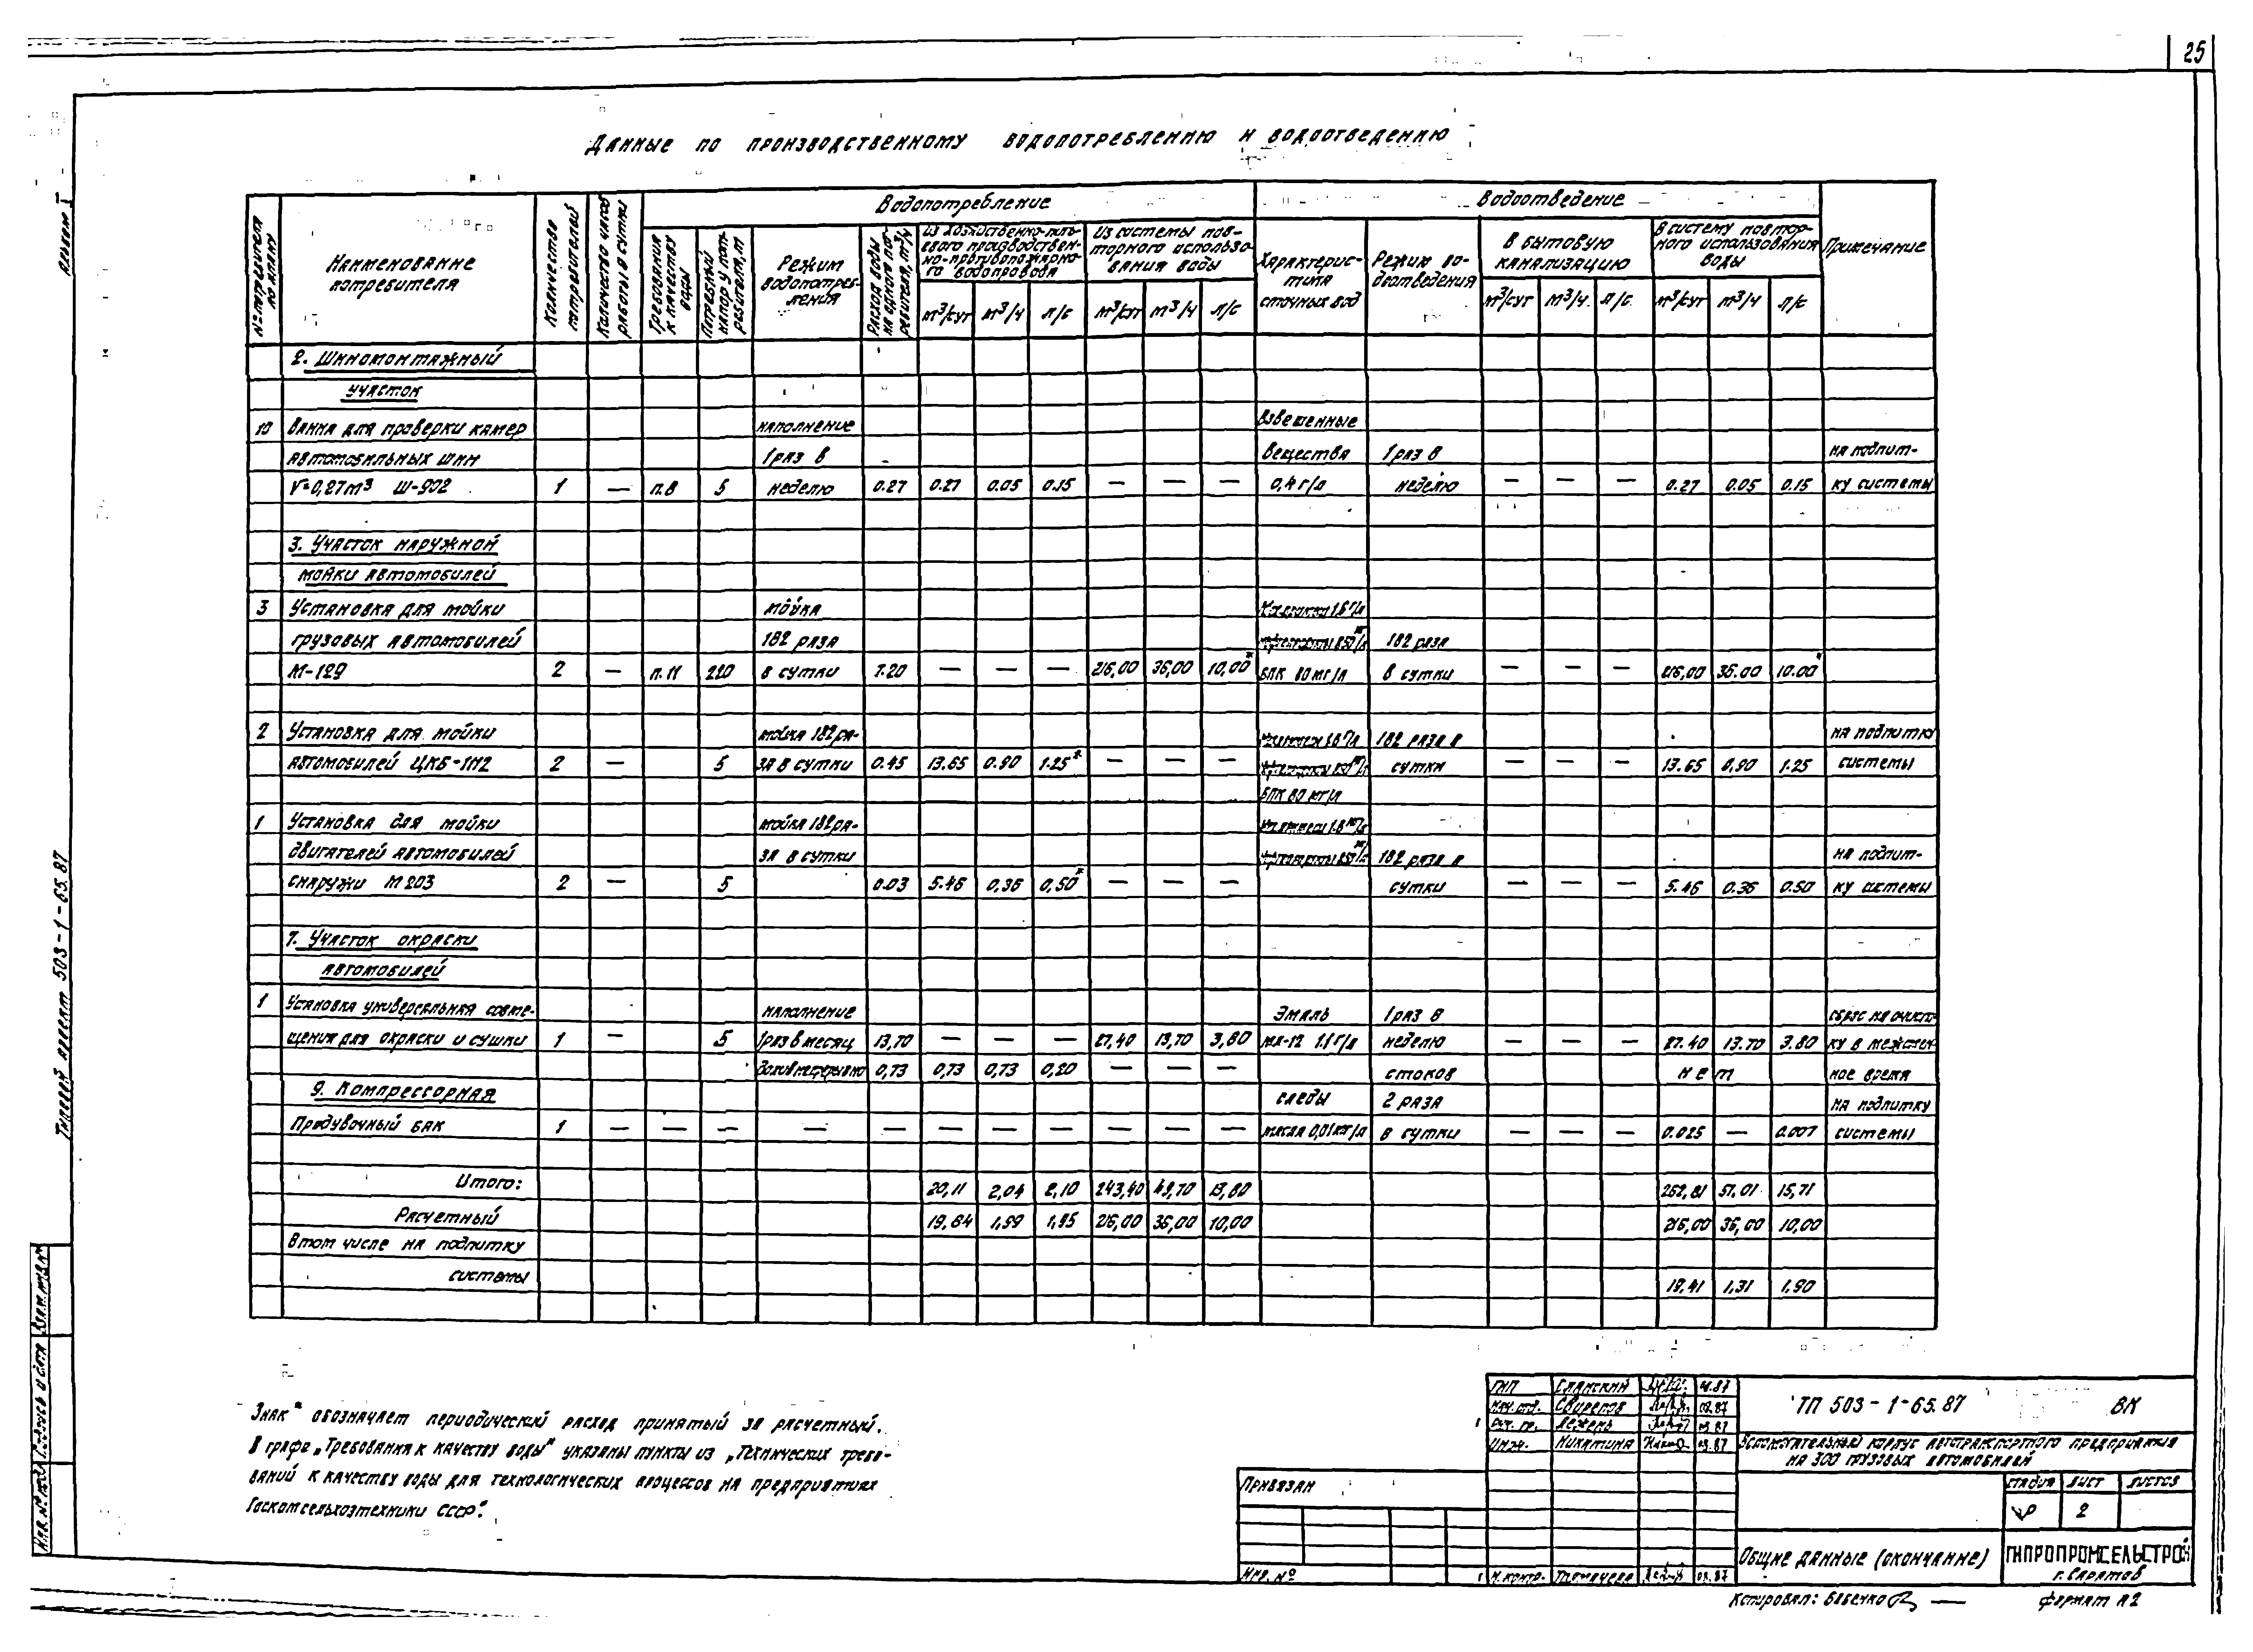 25
Альбом I
Типовой проект 503-1-65.87
Данные по производственному водопотреблению и водоотведению
№ потребителя по плану
Наименование потребителя
Количество потребителей
Количество часов работы в сутки
Водопотребление
Требования к качеству воды
Потребный напор у потребителя, м
Режим водопотребления
Расход воды на одного потребителя, м³/ч
Из хозяйственно-питьевого производственно-противопожарного водопровода
м³/сут м³/ч л/с
Из системы повторного использования воды
м³/сут м³/ч л/с
Водоотведение
Характеристика сточных вод
Режим водоотведения
В бытовую канализацию
м³/сут м³/ч. л/с.
В систему повторного использования воды
м³/сут м³/ч л/с
Примечание
2. Шиномонтажный
участок
10 Ванна для проверки камер наполнение Взвешенные
автомобильных шин 1 раз в вещества 1 раз в на подпит-
V=0,27м³ Ш-902 1 — п.8 5 неделю 0.27 0.27 0.05 0.15 — — — 0,4 г/л неделю — — — 0.27 0.05 0.15 ку системы
3. Участок наружной
мойки автомобилей
3 Установка для мойки мойка
грузовых автомобилей 182 раза 182 раза
М-129 2 — п.11 220 в сутки 7.20 — — — 216,00 36,00 10,00* БПК 80 мг/л в сутки — — — 216,00 36.00 10.00*
2 Установка для мойки мойка 182 ра- 182 раза в на подпитку
автомобилей ЦКБ-1112 2 — 5 за в сутки 0.45 13.65 0.90 1.25* — — — сутки — — — 13.65 0,90 1.25 системы
БПК 80 мг/л
1 Установка для мойки мойка 182 ра-
двигателей автомобилей за в сутки 182 раза в на подпит-
снаружи М 203 2 — 5 0.03 5.46 0,36 0,50* — — — сутки — — — 5.46 0.36 0.50 ку системы
7. Участок окраски
автомобилей
1 Установка универсальная совме- наполнение Эмаль 1 раз в сброс на очист-
щения для окраски и сушки 1 — 5 1 раз в месяц 13,70 — — — 27,40 13,70 3,80 мл-12 1.1 г/л неделю — — — 27.40 13.70 3.80 ку в межсмен-
долив непрерывно 0,73 0,73 0,73 0,20 — — — стоков нет ное время
9. Компрессорная следы 2 раза на подпитку
Продувочный бак 1 — — — — — — — — — — — масла 0,01 кг/л в сутки — — — 0.025 — 0.007 системы
Итого: 20,11 2,04 2,10 243,40 49,70 13,80 262,81 51.01 15,71
Расчетный 19.84 1,99 1,95 216,00 36,00 10,00 216,00 36,00 10,00
В том числе на подпитку
системы 19,41 1,31 1,90
Знак * обозначает периодический расход принятый за расчетный.
В графе „Требования к качеству воды" указаны пункты из „Технических требо-
ваний к качеству воды для технологических процессов на предприятиях
Госкомсельхозтехники СССР".
ГИП Сланский 04.87
Нач. отд. Свиредов 03.87
Рук. гр. Лежень 03.87
Инж. Никитина 03.87
Н.контр. Толмачева 03.87
ТП 503-1-65.87 ВК
Вспомогательный корпус автотранспортного предприятия
на 300 грузовых автомобилей
Стадия Лист Листов
Р 2
Общие данные (окончание)
ГИПРОПРОМСЕЛЬСТРОЙ
г. Саратов
Привязан
Инв. №
Инв. № подл. Подпись и дата Взам. инв. №
Копировал: Бабенко
формат А2